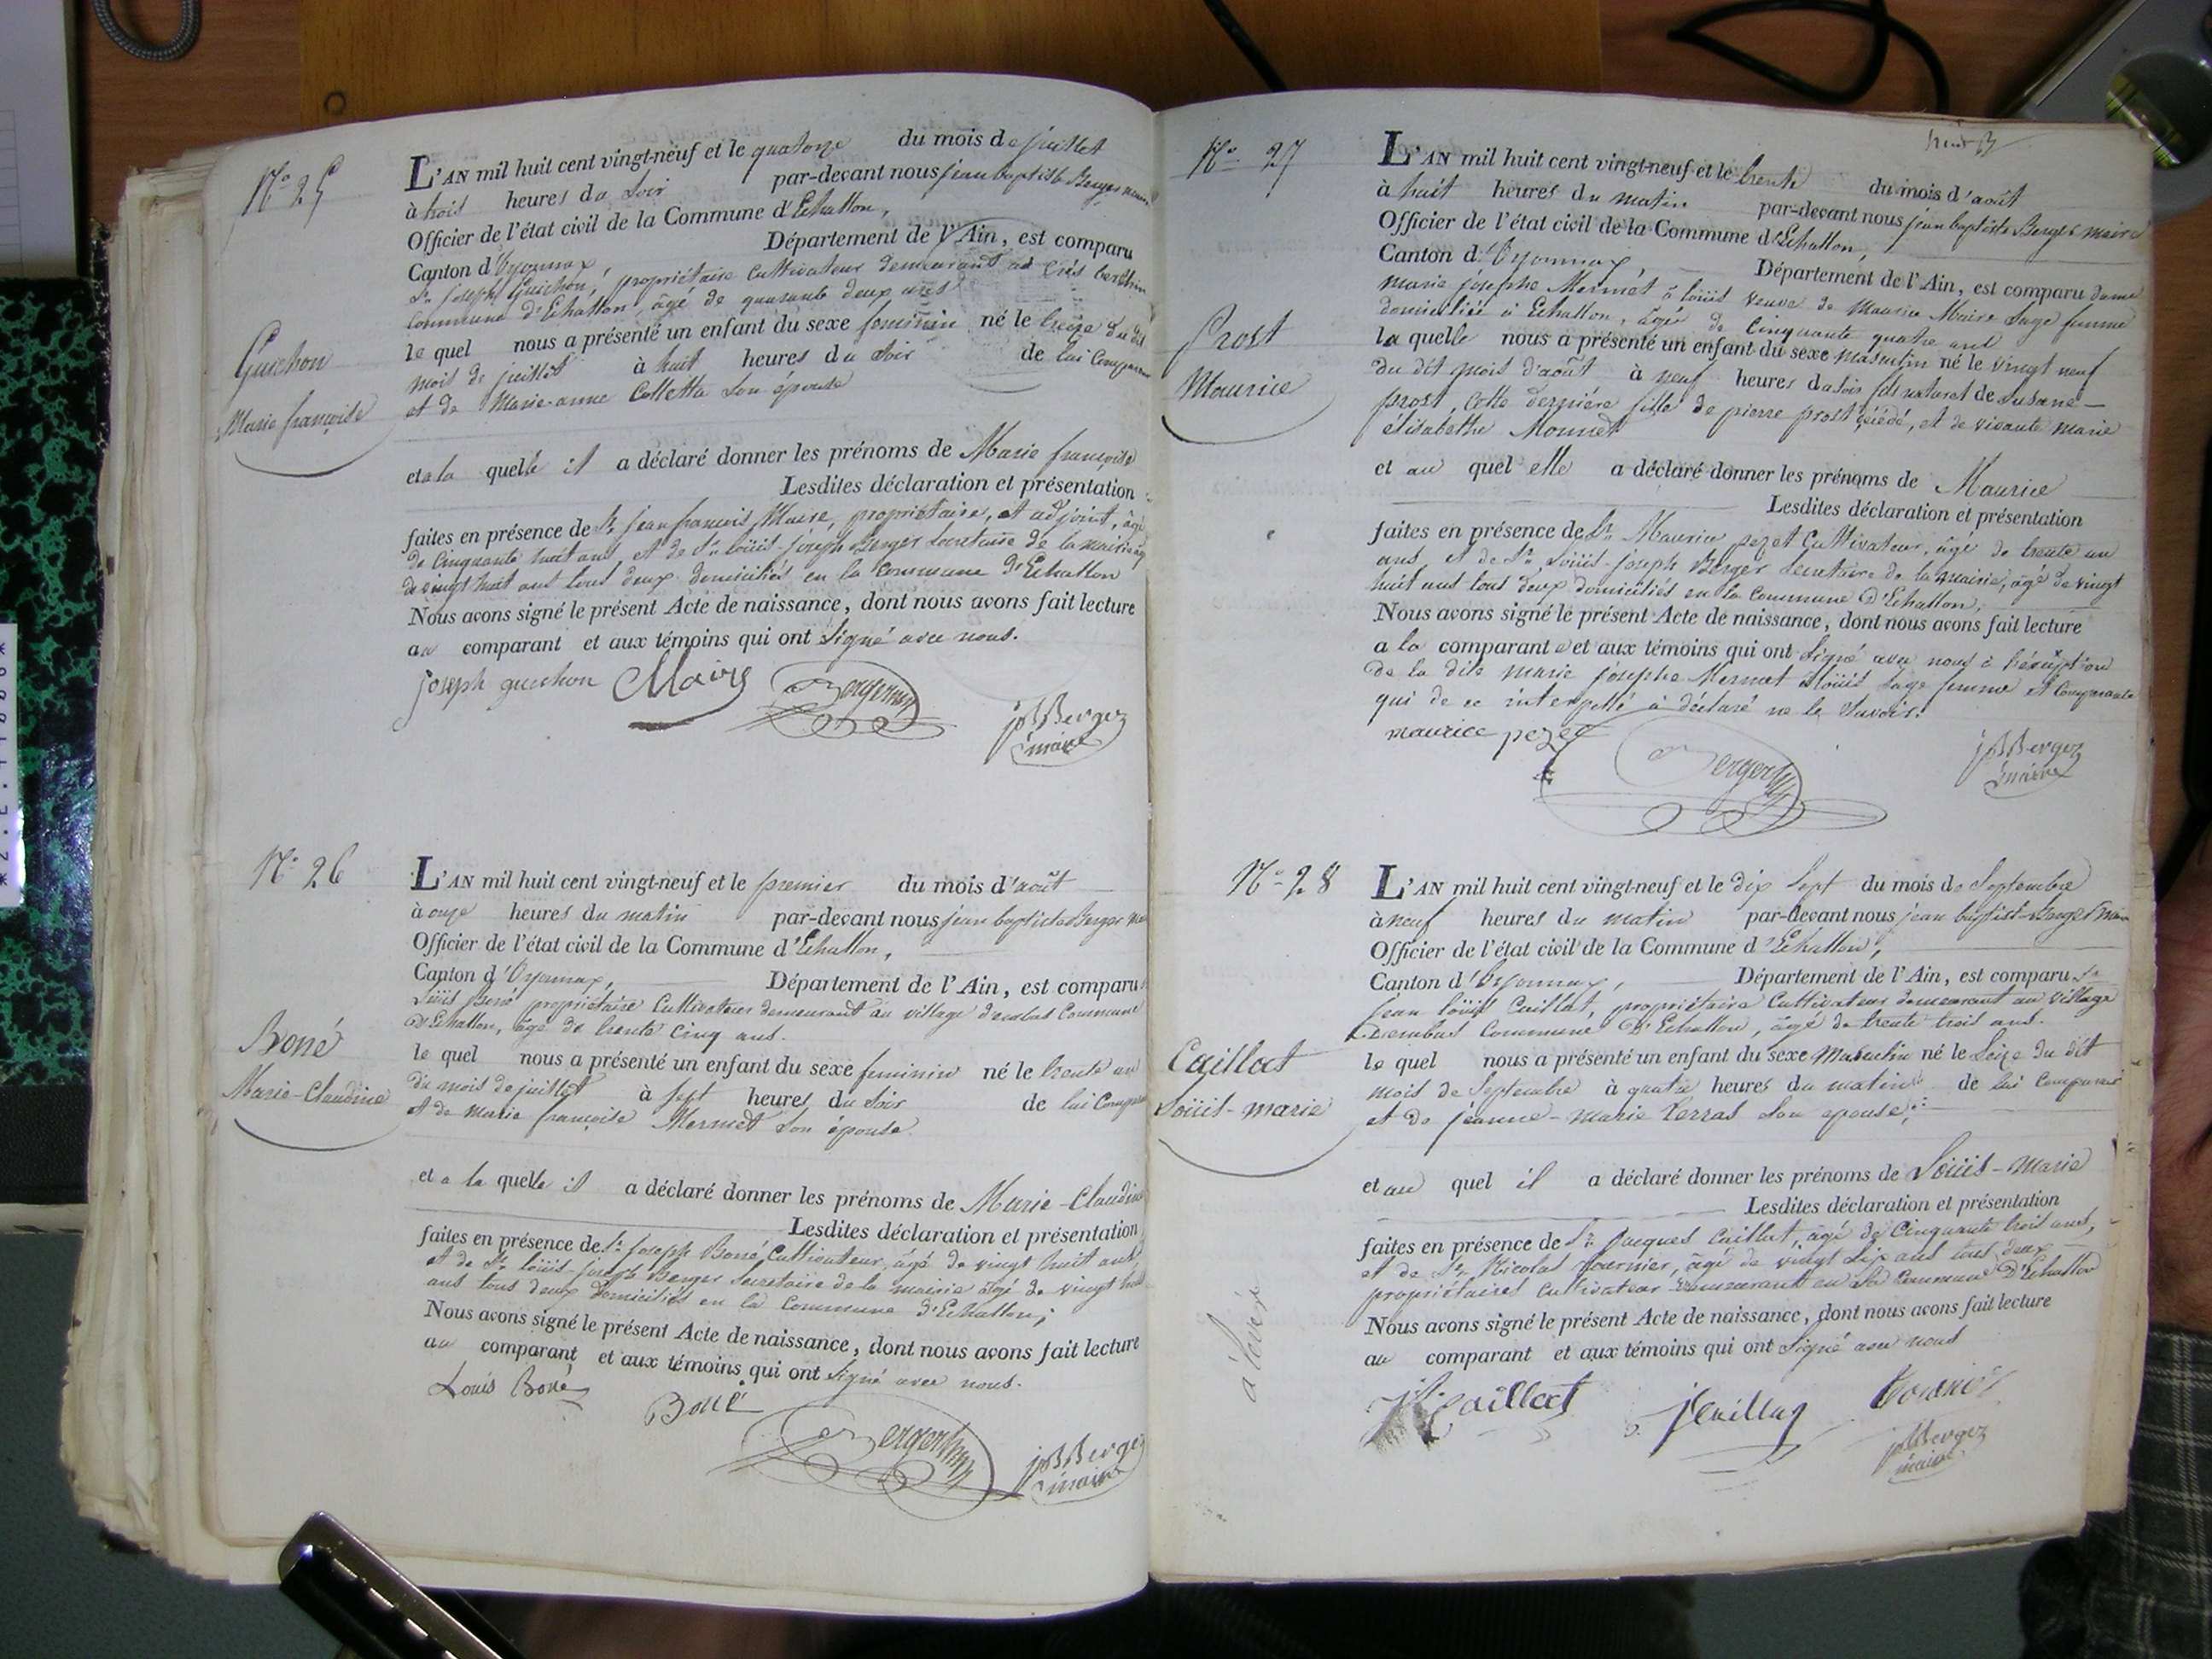 N° 25
Guichon
Marie françoise
L'AN mil huit cent vingt-neuf et le quatorze du mois de juillet
à trois heures du soir par-devant nous jean baptiste Berger maire
Officier de l'état civil de la Commune d'Echallon,
Canton d'Oyonnax, Département de l'Ain, est comparu
Sr joseph Guichon, propriétaire cultivateur demeurant au
commune d'Echallon, âgé de quarante deux ans
le quel nous a présenté un enfant du sexe feminin né le treize du dit
mois de juillet à huit heures du soir de lui comparant
et de Marie-anne Colletta son épouse
et a la quelle il a déclaré donner les prénoms de Marie françoise
Lesdites déclaration et présentation
faites en présence de Sr jean françois Maire, propriétaire, et adjoint, âgé
de cinquante huit ans, et de Sr loüis-joseph Berger secretaire de la mairie âgé
de vingt huit ans tous deux domiciliés en la commune d'Echallon
Nous avons signé le présent Acte de naissance, dont nous avons fait lecture
au comparant et aux témoins qui ont signé avec nous.
joseph guichon Maire Berger
jB Berger
maire
N° 26
Boné
Marie-Claudine
L'AN mil huit cent vingt-neuf et le premier du mois d'août
à onze heures du matin par-devant nous jean baptiste Berger
Officier de l'état civil de la Commune d'Echallon,
Canton d'Oyonnax, Département de l'Ain, est comparu
Loüis Boné propriétaire cultivateur demeurant au village commune
d'Echallon, âgé de trente cinq ans.
le quel nous a présenté un enfant du sexe feminin né le trente un
du mois de juillet à sept heures du soir de lui
et de marie françoise Mermet son épouse.
et a la quelle il a déclaré donner les prénoms de Marie-Claudine
Lesdites déclaration et présentation
faites en présence de Sr joseph Boné cultivateur, âgé de vingt huit ans
et de Sr loüis-joseph Berger secretaire de la mairie âgé de vingt huit
ans tous deux domiciliés en la commune d'Echallon;
Nous avons signé le présent Acte de naissance, dont nous avons fait lecture
au comparant et aux témoins qui ont signé avec nous.
Louis Boné Boné Berger
jB Berger
maire
N° 27
Prost
Maurice
L'AN mil huit cent vingt-neuf et le trente du mois d'août
à huit heures du matin par-devant nous jean baptiste Berger maire
Officier de l'état civil de la Commune d'Echallon,
Canton d'Oyonnax, Département de l'Ain, est comparu dame
marie josephe Mermet à loüis veuve de Maurice Maire sage femme
domiciliée à Echallon, âgée de cinquante quatre ans
la quelle nous a présenté un enfant du sexe masculin né le vingt neuf
du dit mois d'août à neuf heures du soir fils naturel de Susane-
prost, cette dernière fille de pierre prost décédé, et de vivante marie
élisabethe Monnet
et au quel elle a déclaré donner les prénoms de Maurice
Lesdites déclaration et présentation
faites en présence de Sr Maurice pezet cultivateur, âgé de trente un
ans, et de Sr Loüis-joseph Berger secretaire de la mairie, âgé de vingt
huit ans tous deux domiciliés en la commune d'Echallon,
Nous avons signé le présent Acte de naissance, dont nous avons fait lecture
a la comparante et aux témoins qui ont signé avec nous à
de la dite marie josephe Mermet à loüis sage femme et comparante
qui de ce interpellé à déclaré ne le savoir.
maurice pezet
Berger
jB Berger
maire
N° 28
Caillat
Loüis-marie
L'AN mil huit cent vingt-neuf et le dix sept du mois de Septembre
à neuf heures du matin par-devant nous jean baptist-Berger maire
Officier de l'état civil de la Commune d'Echallon,
Canton d'Oyonnax, Département de l'Ain, est comparu Sr
jean loüis Caillat, propriétaire cultivateur demeurant au village
commune d'Echallon, âgé de trente trois ans.
le quel nous a présenté un enfant du sexe masculin né le seize du dit
mois de Septembre à quatre heures du matin de lui comparant
et de jeanne-marie son épouse;
et au quel il a déclaré donner les prénoms de Loüis-marie
Lesdites déclaration et présentation
faites en présence de Sr jacques Caillat, âgé de cinquante trois ans,
et de Sr Nicolas tournier, âgé de vingt six ans tous deux
propriétaires cultivateur demeurant en la commune d'Echallon
Nous avons signé le présent Acte de naissance, dont nous avons fait lecture
au comparant et aux témoins qui ont signé avec nous
Caillat jCaillat tournier
jB Berger
maire